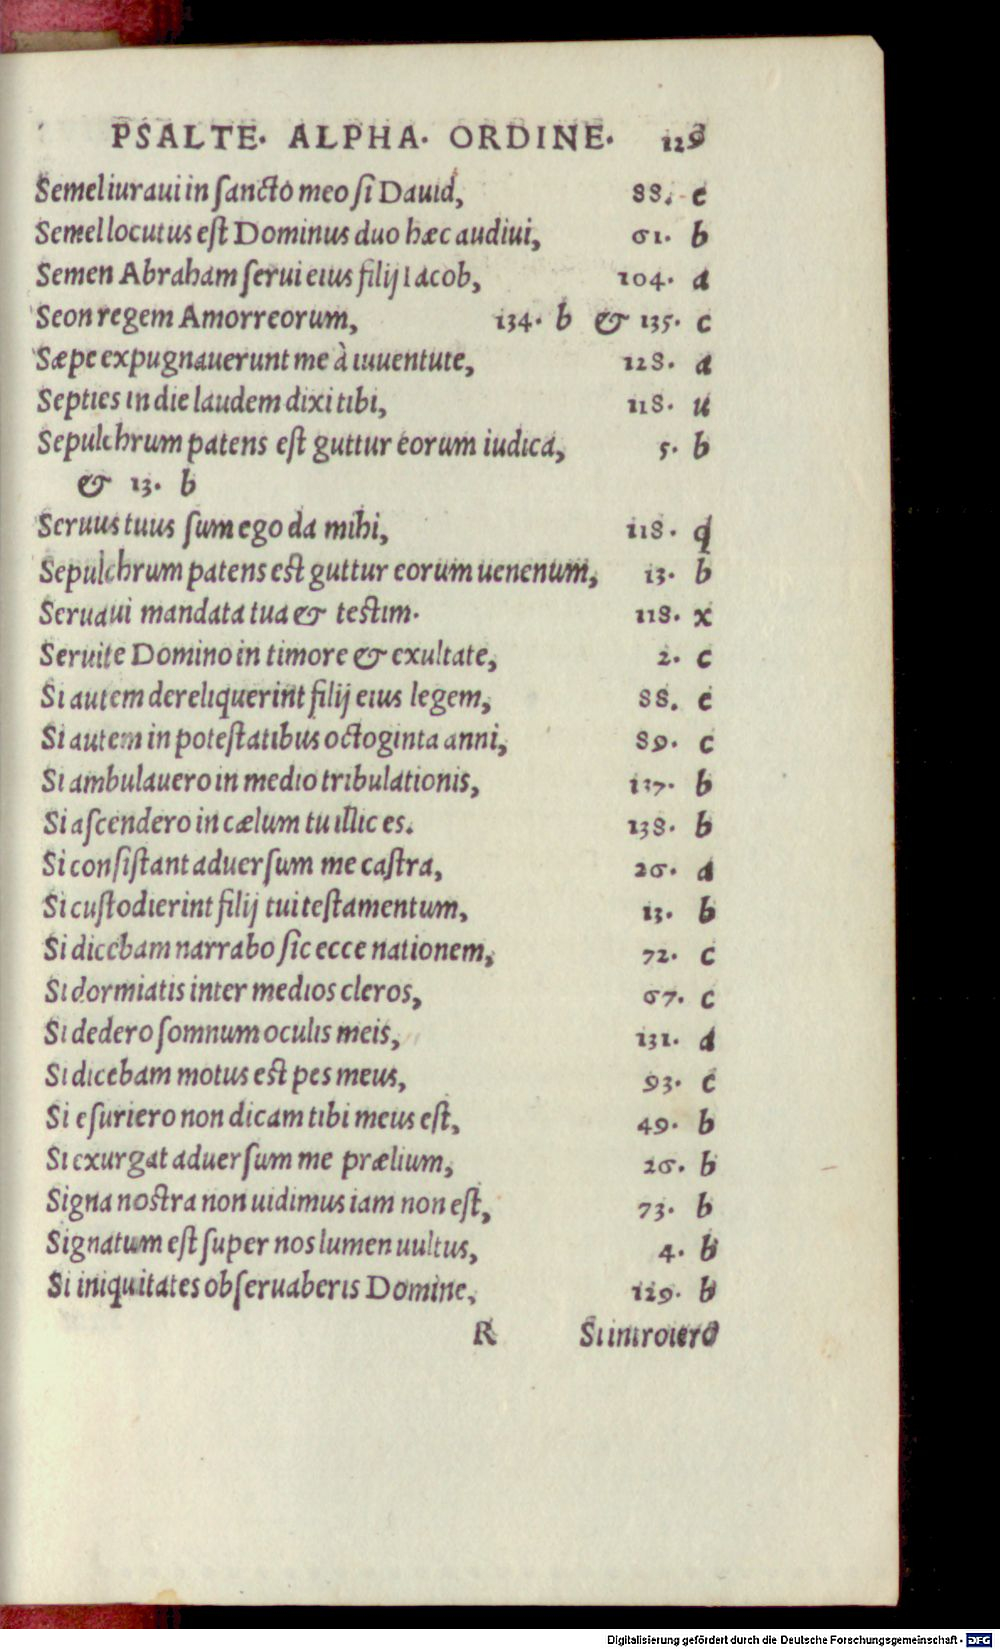 PSALTE. ALPHA. ORDINE. 129
Semel iuraui in ſancto meo ſi Dauid, 88. e
Semel locutus eſt Dominus duo hæc audiui, 61. b
Semen Abraham ſerui eius filij Iacob, 104. a
Seon regem Amorreorum, 134. b & 135. c
Sæpe expugnauerunt me à iuuentute, 128. a
Septies in die laudem dixi tibi, 118. u
Sepulchrum patens eſt guttur eorum iudica, 5. b
& 13. b
Seruus tuus ſum ego da mihi, 118. q
Sepulchrum patens eſt guttur eorum uenenum, 13. b
Seruaui mandata tua & teſtim. 118. x
Seruite Domino in timore & exultate, 2. c
Si autem dereliquerint filij eius legem, 88. e
Si autem in poteſtatibus octoginta anni, 89. c
Si ambulauero in medio tribulationis, 137. b
Si aſcendero in cælum tu illic es. 138. b
Si conſiſtant aduerſum me caſtra, 26. a
Si cuſtodierint filij tui teſtamentum, 13. b
Si dicebam narrabo ſic ecce nationem, 72. c
Si dormiatis inter medios cleros, 67. c
Si dedero ſomnum oculis meis, 131. a
Si dicebam motus eſt pes meus, 93. c
Si eſuriero non dicam tibi meus eſt, 49. b
Si exurgat aduerſum me prælium, 26. b
Signa noſtra non uidimus iam non eſt, 73. b
Signatum eſt ſuper nos lumen uultus, 4. b
Si iniquitates obſeruaberis Domine, 129. b
R Si introiero
Digitalisierung gefördert durch die Deutsche Forschungsgemeinschaft - DFG